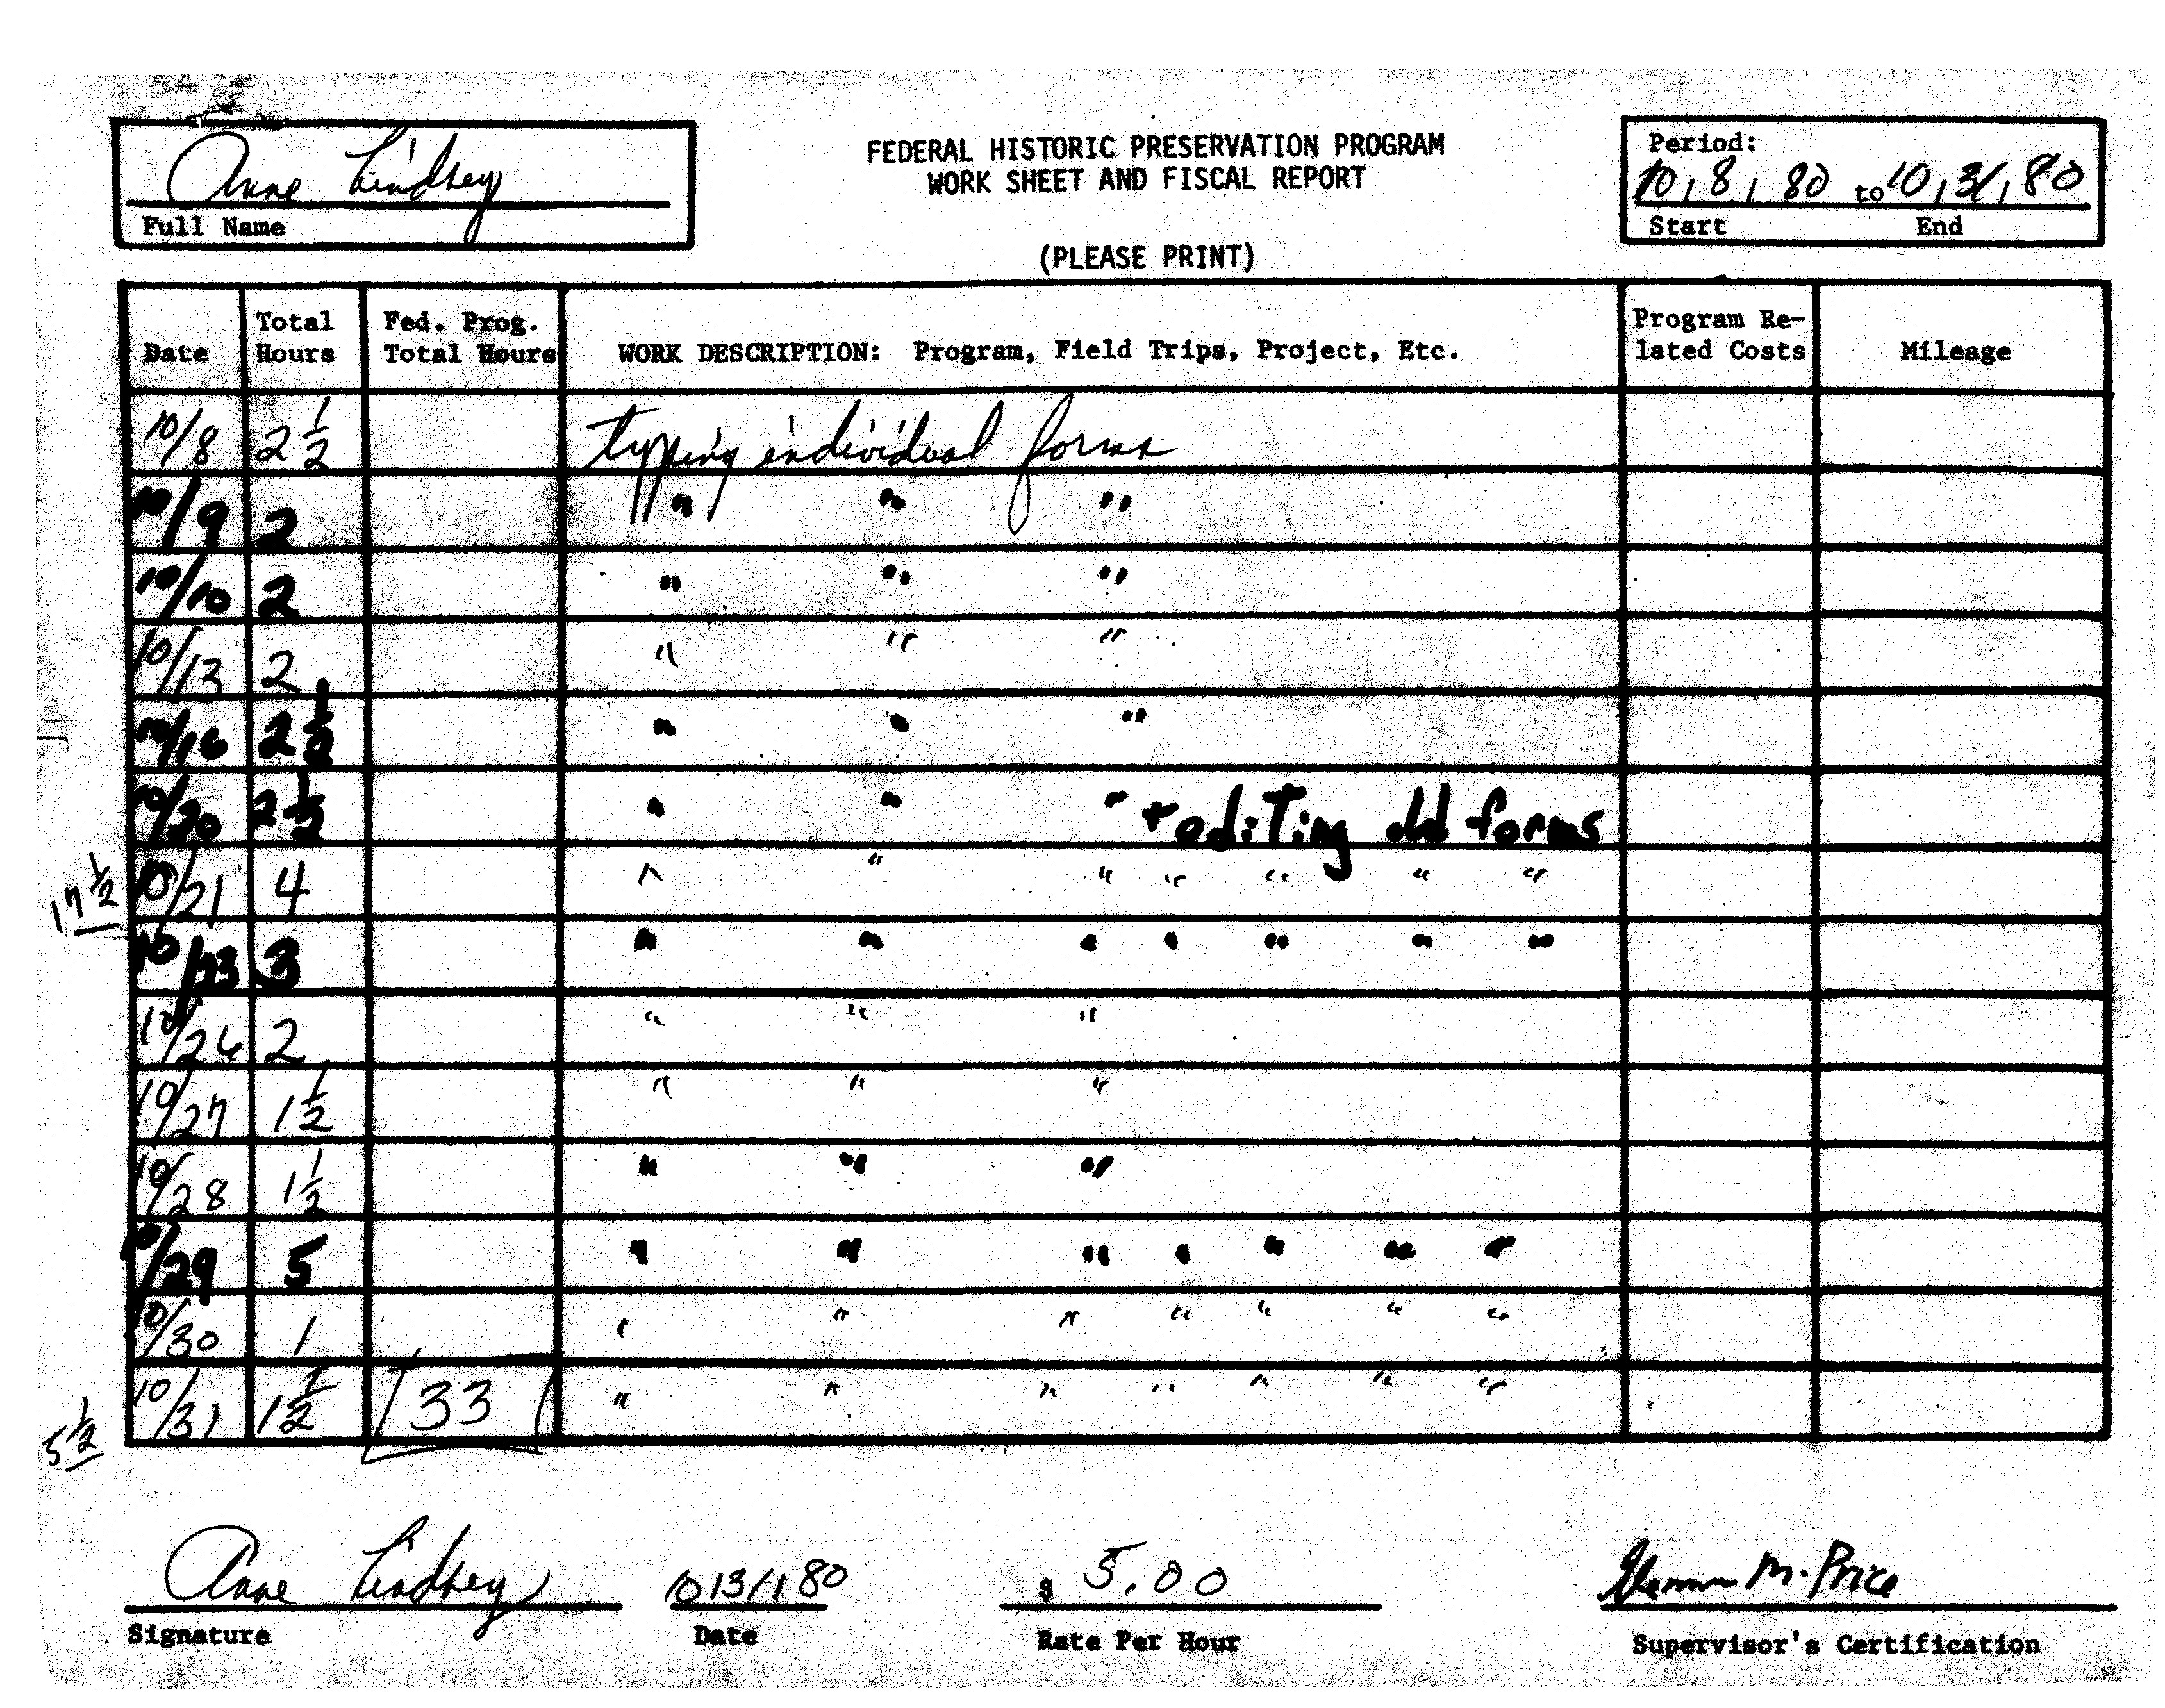 Anne Lindsey
Full Name
FEDERAL HISTORIC PRESERVATION PROGRAM
WORK SHEET AND FISCAL REPORT
(PLEASE PRINT)
Period:
10/8/80 to 10/31/80
Start End
Date Total Hours Fed. Prog. Total Hours WORK DESCRIPTION: Program, Field Trips, Project, Etc. Program Re-lated Costs Mileage
10/8 2 1/2 typing individual forms
10/9 2 " " "
10/10 2 " " "
10/13 2 " " "
10/16 2 1/2 " " "
10/20 2 1/2 " " " + editing old forms
17 1/2
10/21 4 " " " " " " "
10/23 3 " " " " " " "
10/24 2 " " "
10/27 1 1/2 " " "
10/28 1 1/2 " " "
10/29 5 " " " " " " "
10/30 1 " " " " " " "
10/31 1 1/2 33 " " " " " " "
5 1/2
Anne Lindsey 10/31/80 $ 5.00 M. Price
Signature Date Rate Per Hour Supervisor's Certification